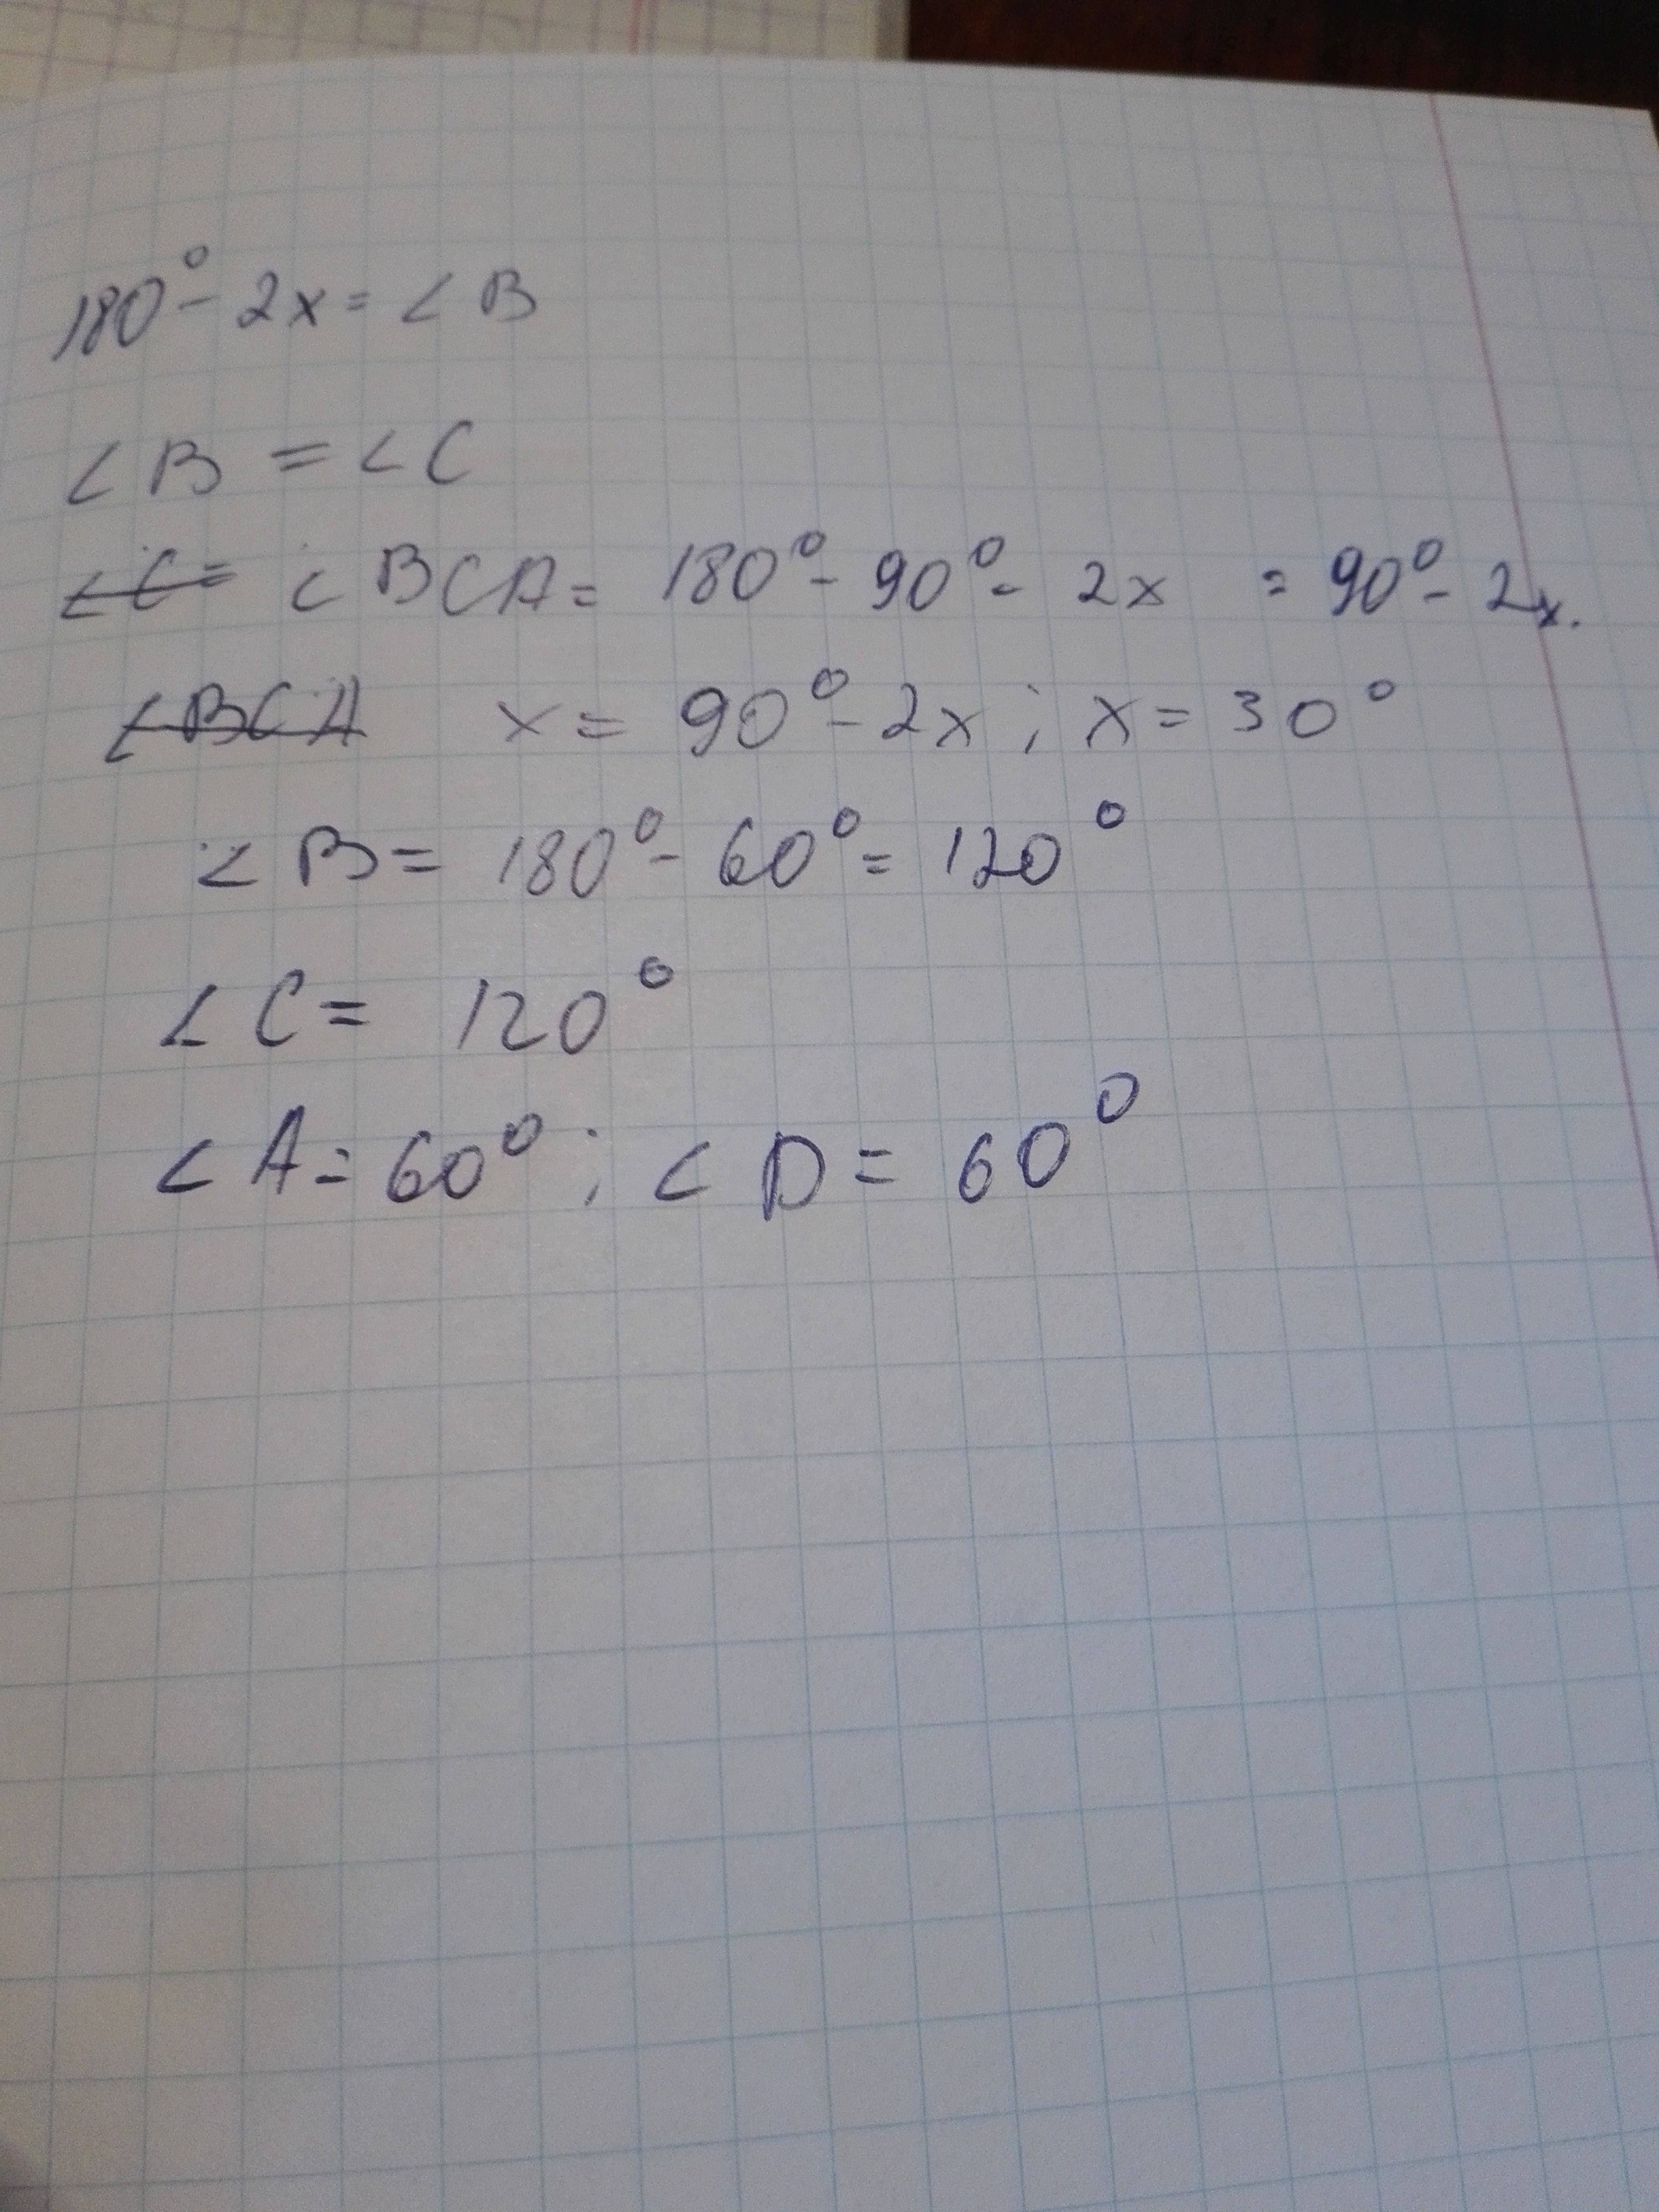 180° - 2x = ∠B
∠B = ∠C
∠C = ∠BCA = 180° - 90° - 2x = 90° - 2x.
∠BCA x = 90° - 2x ; x = 30°
∠B = 180° - 60° = 120°
∠C = 120°
∠A = 60° ; ∠D = 60°